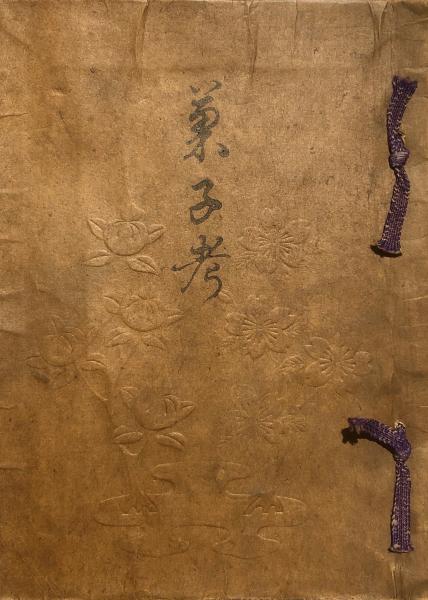 菓子考